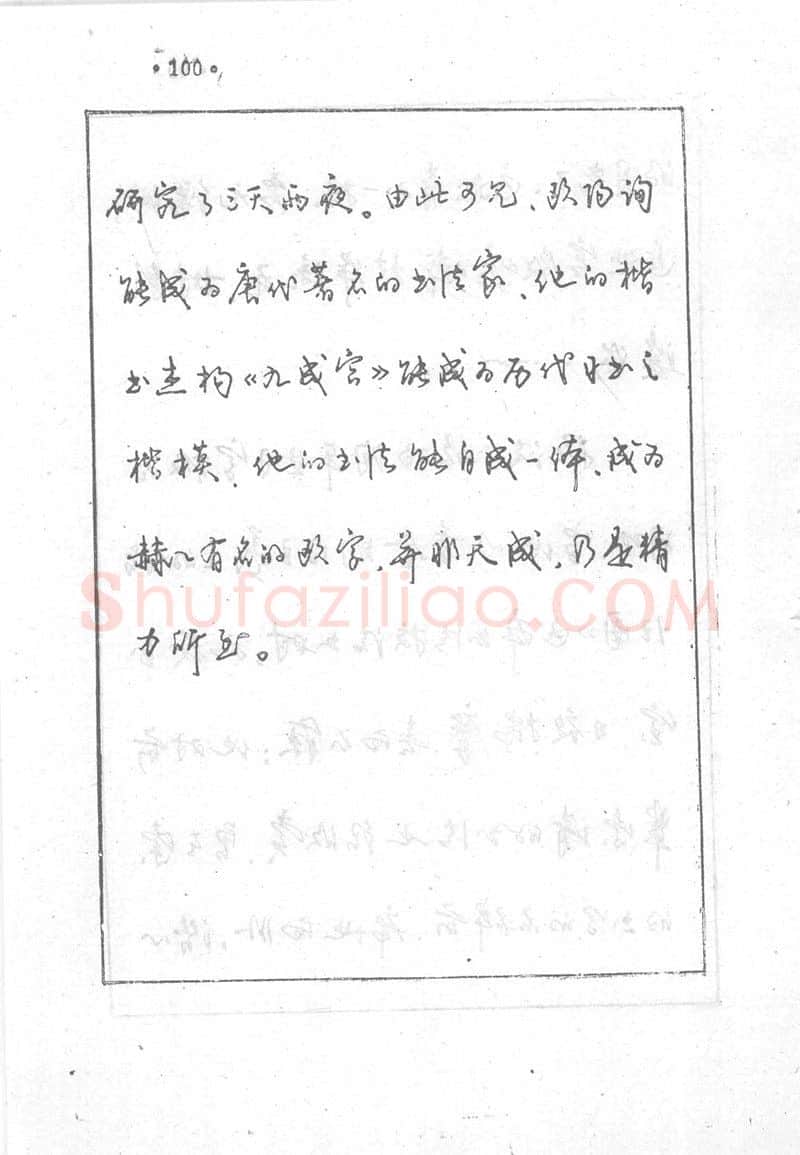 ·100·
研究了三天两夜。由此可见、欧阳询
能成为唐代著名的书法家、他的楷
书杰构《九成宫》能成为历代习书之
楷模、他的书法能自成一体、成为
赫赫有名的欧字、并非天成、乃是精
力所至。
Shufaziliao.COM